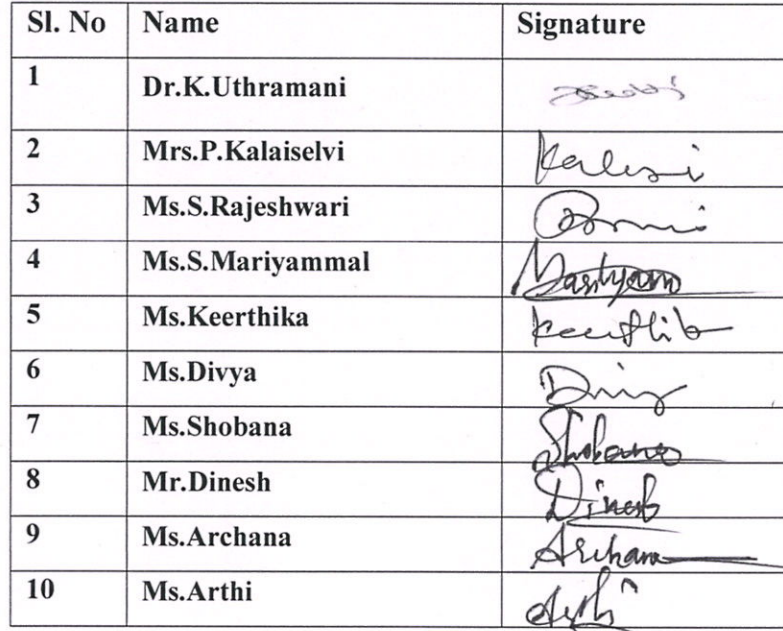 Sl. No Name Signature
1 Dr.K.Uthramani
2 Mrs.P.Kalaiselvi
3 Ms.S.Rajeshwari
4 Ms.S.Mariyammal
5 Ms.Keerthika
6 Ms.Divya
7 Ms.Shobana Shobana
8 Mr.Dinesh Dinesh
9 Ms.Archana Archana
10 Ms.Arthi